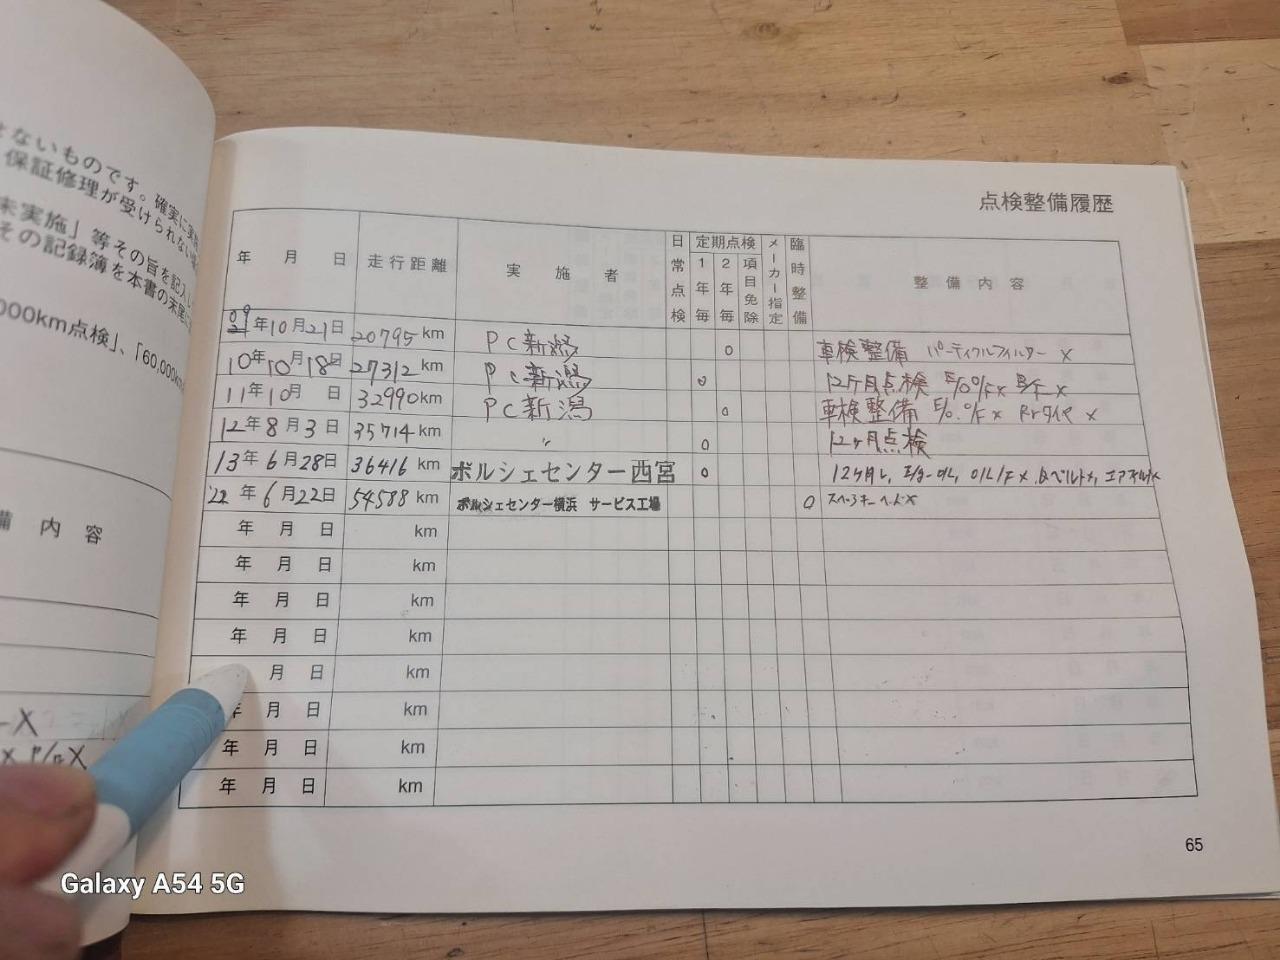 せないものです。確実に実施
保証修理が受けられない場合
未実施」等その旨を記入し
その記録簿を本書の末尾に
000km点検」、「60,000km
備 内 容
点検整備履歴
年 月 日 走行距離 実施者 日常点検 定期点検 1年毎 2年毎 項目免除 メーカー指定 臨時整備 整備内容
09 21 年10月21日 20795 km PC新潟 o 車検整備 パーティクルフィルター x
10年10月18日 27312 km PC新潟 o 12ヶ月点検 E/o O/F x B/F x
11年10月 日 32990 km PC新潟 o 車検整備 E/o. O/F x Rrタイヤ x
12年8月3日 35714 km 〃 o 12ヶ月点検
13年6月28日 36416 km ポルシェセンター西宮 o 12ヶ月
'22年6月22日 54588 km ポルシェセンター横浜 サービス工場 o スペアーキー
年 月 日 km
年 月 日 km
年 月 日 km
年 月 日 km
月 日 km
年 月 日 km
年 月 日 km
年 月 日 km
65
Galaxy A54 5G